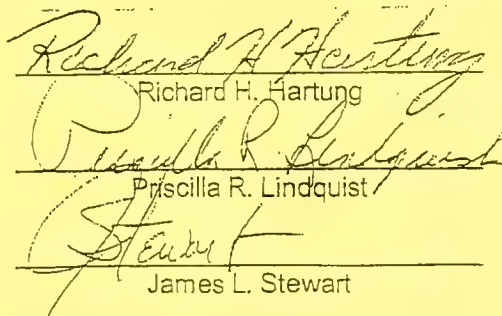 Richard H Hartung
Richard H. Hartung
Priscilla R. Lindquist
Priscilla R. Lindquist
JStewart
James L. Stewart